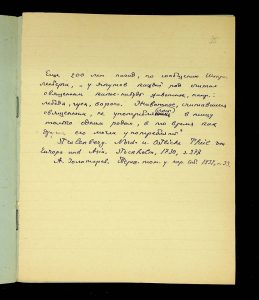 Еще 200 лет назад, по сообщению Штра-
ленберга, „у якутов каждый род считал
священным какое-нибудь животное, напр.:
лебедя, гуся, ворона. Животное, считавшееся
священным, не употребляется в пищу
только одним родом, в то время как
другие его могли употреблять"
Strahlenberg. Nord- u. Östliche Theil von
Europa und Asia. Stockholm, 1730, s. 378.
А. Золотарев.